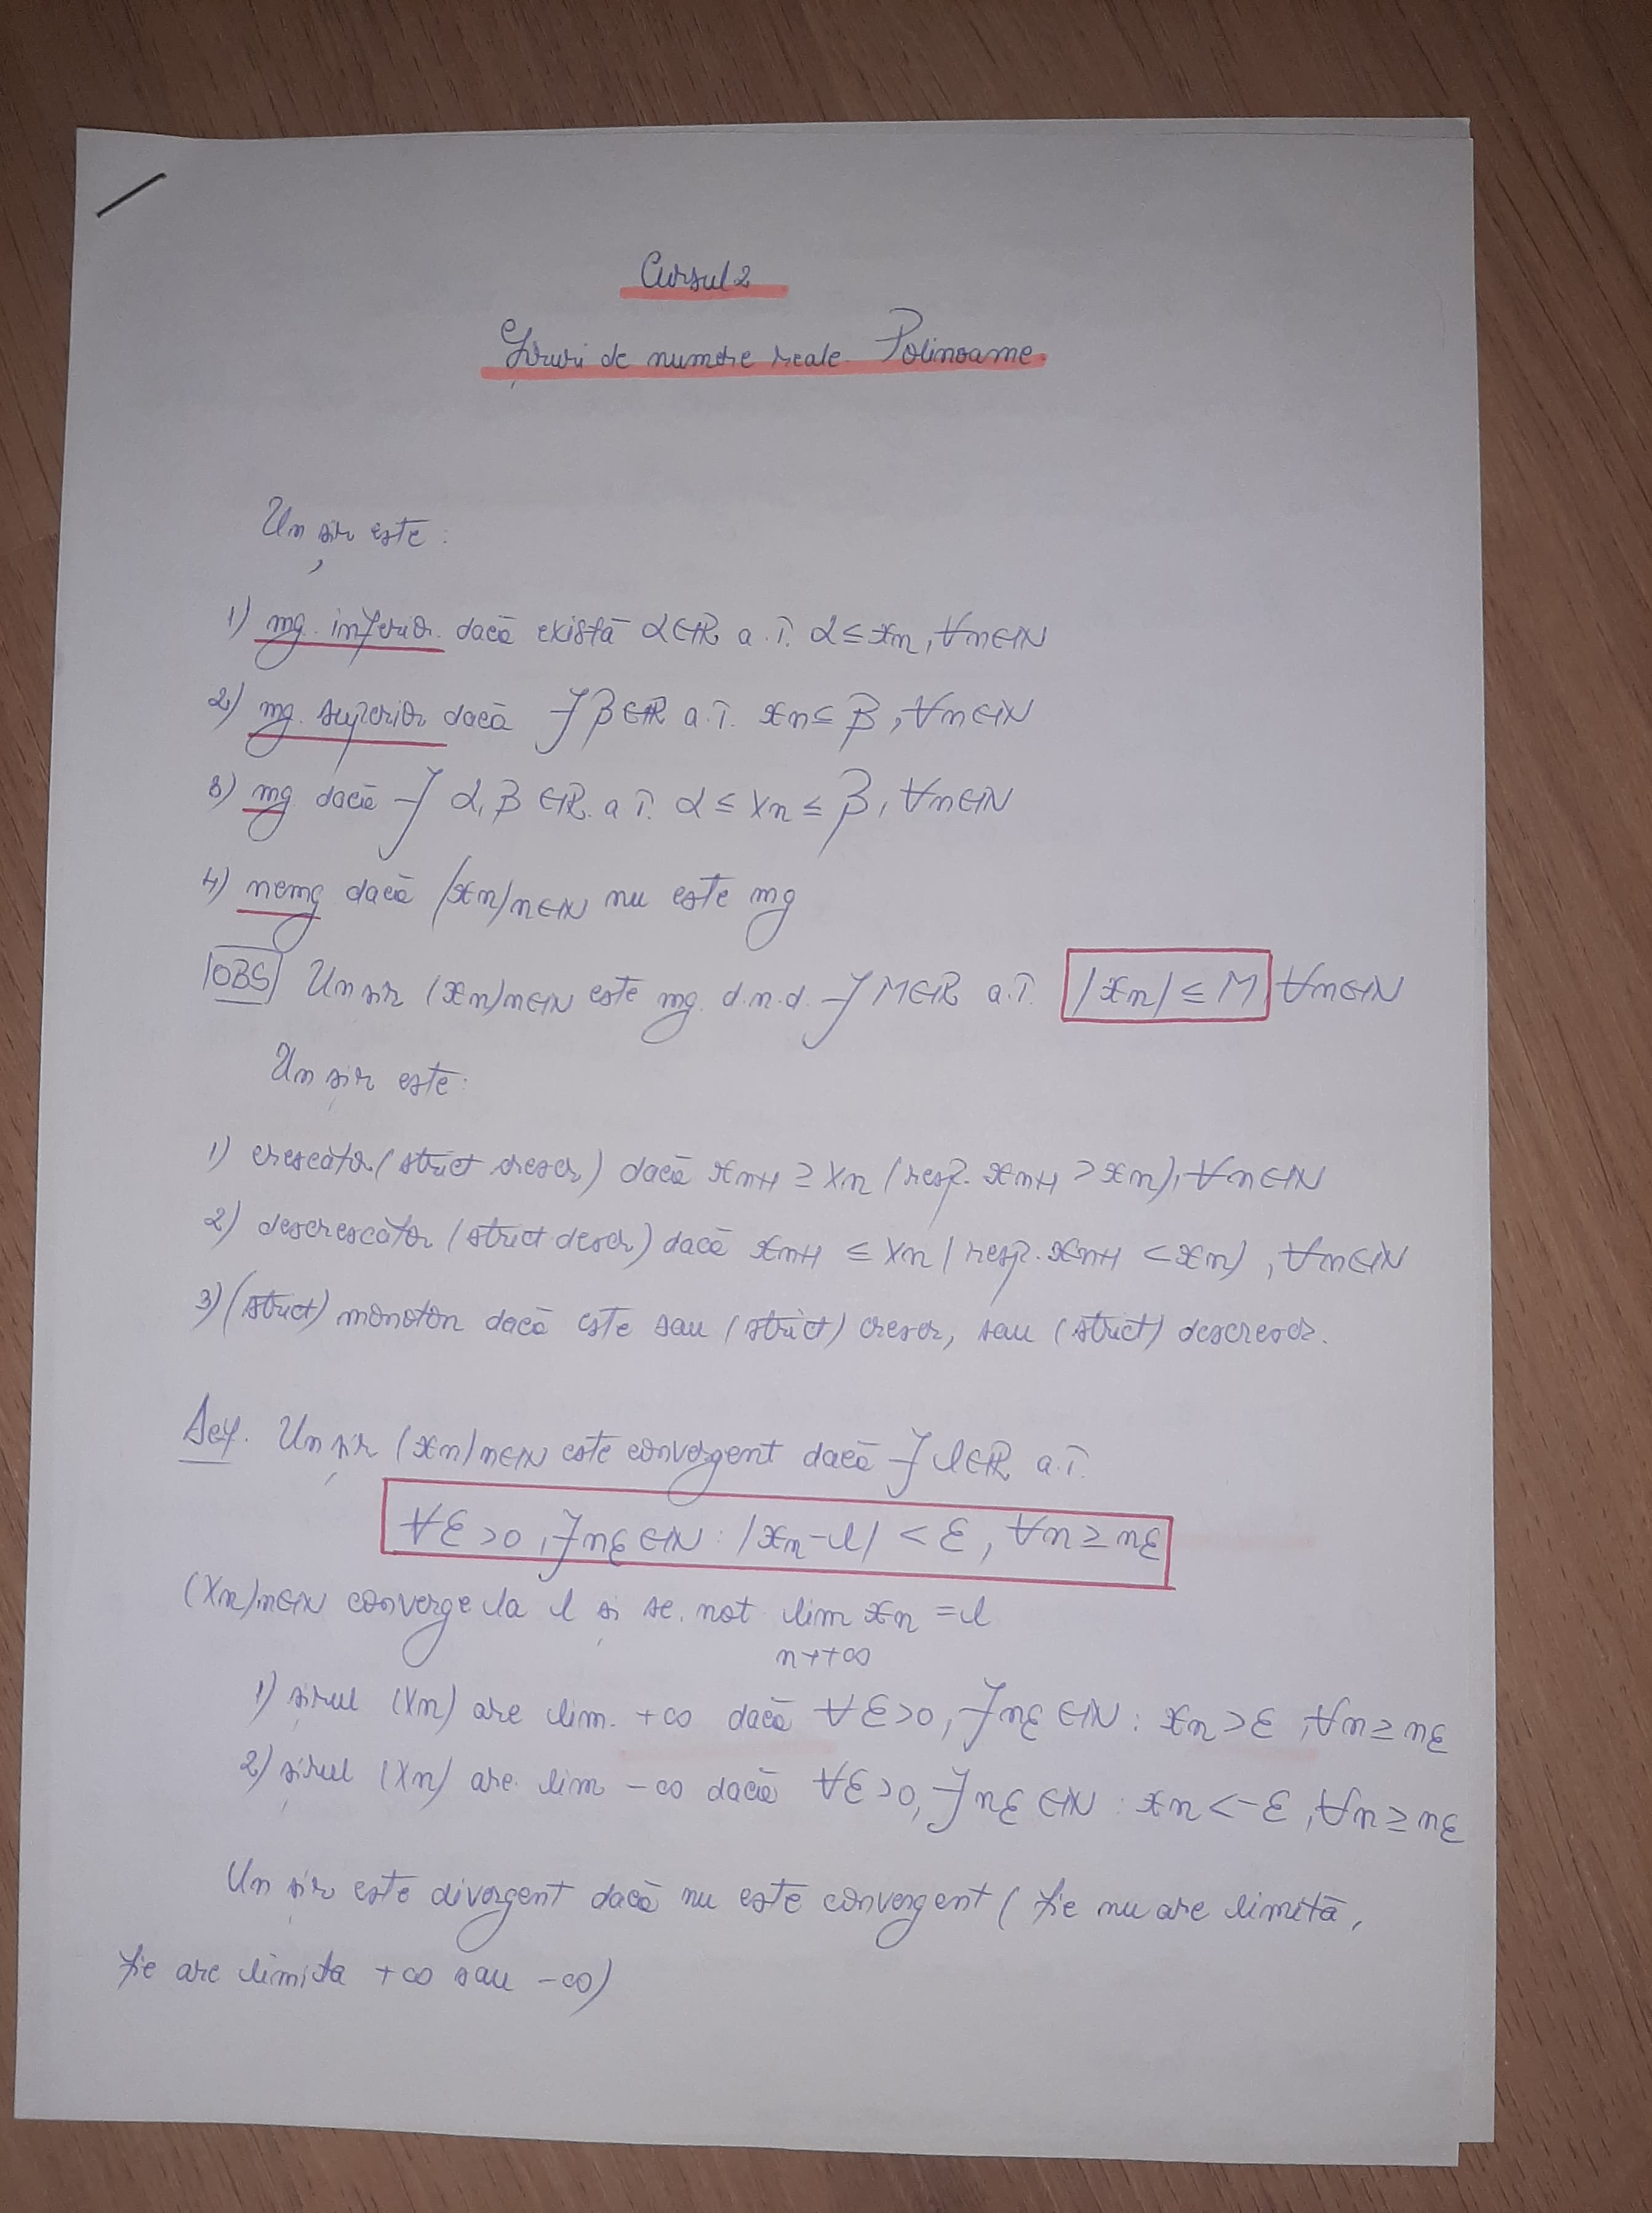 Cursul 2
Șiruri de numere reale. Polinoame.
Un șir este:
1) mg. inferior. dacă există α∈ℝ a.î. α ≤ xn, ∀n∈ℕ
2) mg. superior dacă ∃ β∈ℝ a.î. xn ≤ β, ∀n∈ℕ
3) mg dacă ∃ α, β ∈ℝ. a î. α ≤ xn ≤ β, ∀n∈ℕ
4) nemg dacă (xn)n∈ℕ nu este mg
|OBS| Un șir (xn)n∈ℕ este mg. d.n.d. ∃ M∈ℝ a.î. |xn| ≤ M, ∀n∈ℕ
Un șir este:
1) crescător (strict crescr) dacă xn+1 ≥ xn (resp. xn+1 > xn), ∀n∈ℕ
2) descrescător (strict descr) dacă xn+1 ≤ xn (resp. xn+1 < xn), ∀n∈ℕ
3) (strict) monoton dacă este sau (strict) crescr, sau (strict) descrescr.
Def. Un șir (xn)n∈ℕ este convergent dacă ∃ l∈ℝ a.î.
∀ε>0, ∃nε∈ℕ: |xn-l| < ε, ∀n ≥ nε
(xn)n∈ℕ converge la l și se. not lim xn = l
n→+∞
1) șirul (xn) are lim. +∞ dacă ∀ε>0, ∃nε∈ℕ: xn>ε, ∀n ≥ nε
2) șirul (xn) are lim -∞ dacă ∀ε>0, ∃nε∈ℕ: xn<-ε, ∀n ≥ nε
Un șir este divergent dacă nu este convergent (fie nu are limită,
fie are limita +∞ sau -∞)